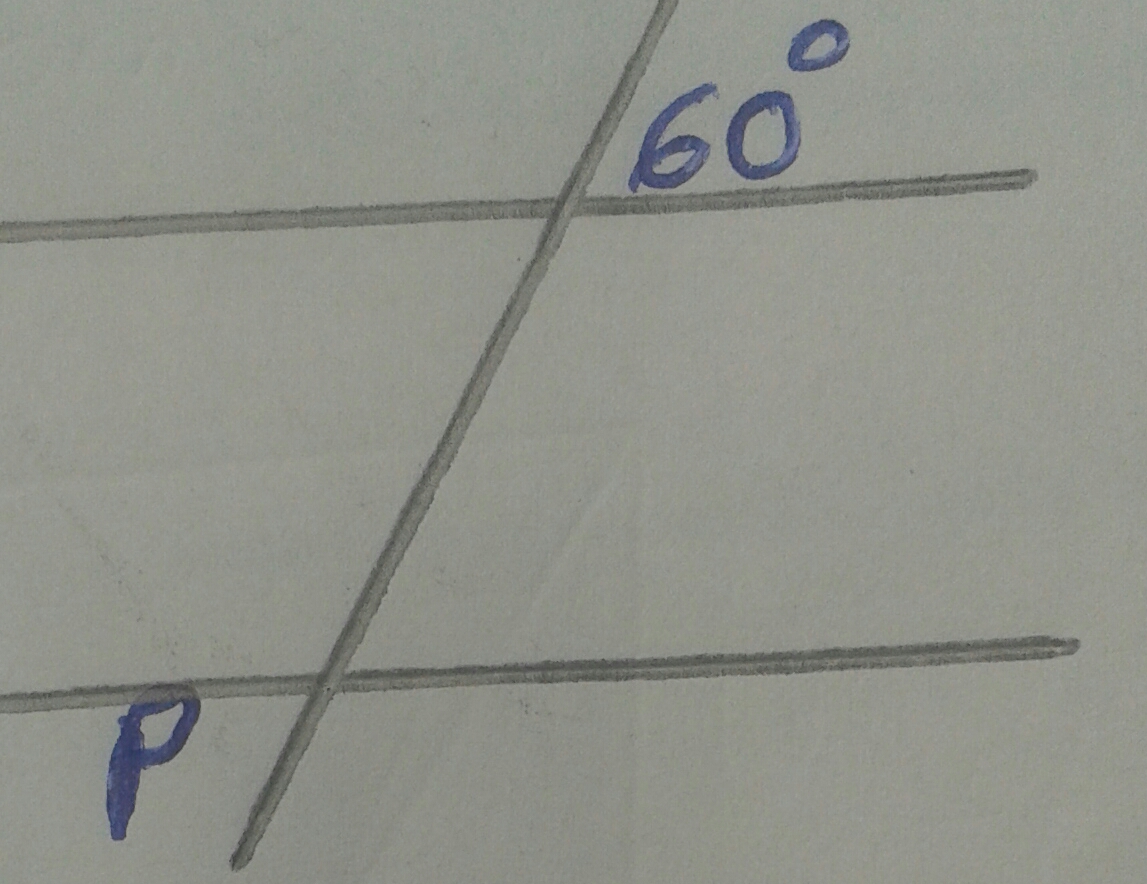 60°
P